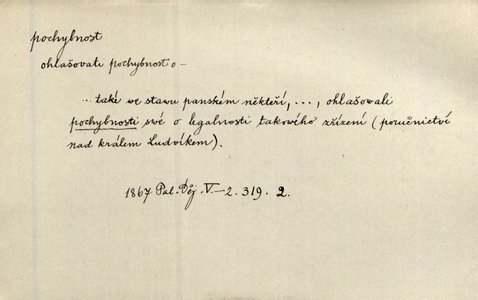 pochybnost
ohlašovati pochybnost o –
.. také we stawu panském někteří, ..., ohlašowali
pochybnosti swé o legalnosti takowého zřízení (poručnictvé
nad králem Ludvíkem).
1867 Pal. Děj. V.–2. 319. 2.